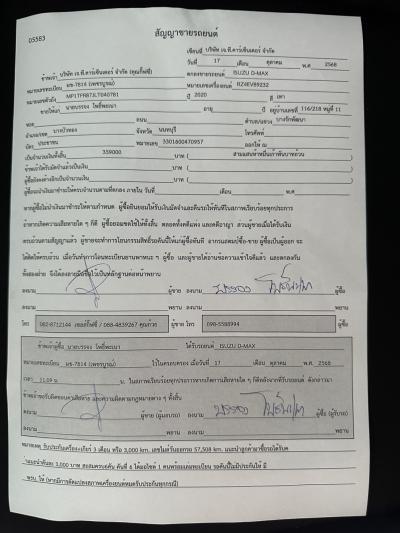 05583
สัญญาขายรถยนต์
เขียนที่ บริษัท เจ.ที.คาร์เซ็นเตอร์ จำกัด
วันที่ 17 เดือน ตุลาคม พ.ศ. 2568
ข้าพเจ้า บริษัท เจ.ที.คาร์เซ็นเตอร์ จำกัด (คุณกิ๊ฟซี่) ตกลงขายรถยนต์ ISUZU D-MAX
หมายเลขทะเบียน ผข-7814 (เพชรบูรณ์) หมายเลขเครื่องยนต์ RZ4EVB9232
หมายเลขตัวถัง MP1TFR87JLT040781 ปี 2020 สี เทา
ขายให้แก่ นายบรรจง โพธิ์พะเนา อายุ ปี อยู่บ้านเลขที่ 116/218 หมู่ที่ 11
ซอย ถนน ตำบล/แขวง บางรักพัฒนา
อำเภอ/เขต บางบัวทอง จังหวัด นนทบุรี โทรศัพท์
บัตร ประชาชน หมายเลข 3301600470957 ออกให้ ณ
เป็นจำนวนเงินทั้งสิ้น 359000 บาท ( สามแสนห้าหมื่นเก้าพันบาทถ้วน )
ข้าพเจ้าได้รับมัดจำแล้วเป็นเงิน บาท ( )
ผู้ซื้อยังคงค้างอีกเป็นจำนวนเงิน บาท ( )
ผู้ซื้อจะนำเงินมาชำระให้ครบจำนวนตามที่ตกลง ภายใน วันที่ เดือน พ.ศ.
หากผู้ซื้อไม่นำเงินมาชำระให้ตามกำหนด ผู้ซื้อยินยอมให้ริบเงินมัดจำและคืนรถให้ทันทีในสภาพเรียบร้อยทุกประการ
ถ้าหากเกิดความเสียหายใด ๆ ก็ดี ผู้ซื้อยอมชดใช้ให้ทั้งสิ้น ตลอดทั้งคดีแพ่ง และคดีอาญา ส่วนผู้ขายเมื่อได้รับเงิน
ครบถ้วนตามสัญญาแล้ว ผู้ขายจะทำการโอนกรรมสิทธิ์รถคันนี้ให้แก่ผู้ซื้อทันที จากวันตกลงซื้อ-ขาย ผู้ซื้อเป็นผู้ออก
ทั้งสองฝ่าย จึงได้ลงลายมือชื่อไว้เป็นหลักฐานต่อหน้าพยาน
ลงนาม ผู้ขาย ลงนาม บรรจง โพธิ์พะเนา ผู้ซื้อ
ลงนาม พยาน ลงนาม พยาน
โทร 082-8712144 / 088-4839267 ผู้ขาย โทร 098-5588994 ผู้ซื้อ
ข้าพเจ้าผู้ซื้อ นายบรรจง โพธิ์พะเนา ได้รับรถยนต์ ISUZU D-MAX
หมายเลขทะเบียน ผข-7814 (เพชรบูรณ์) ไว้ในครอบครอง เมื่อวันที่ 17 เดือน ตุลาคม พ.ศ. 2568
เวลา 11.09 น. น. ในสภาพเรียบร้อยทุกประการหากเกิดการเสียหายใด ๆ ก็ดีหลังจากที่รับรถยนต์ ดังกล่าวมา
ข้าพเจ้าขอรับผิดชอบความเสียหาย และความผิดตามกฎหมายต่าง ๆ ทั้งสิ้น
ลงนาม ผู้ขาย (ผู้มอบรถ) ลงนาม บรรจง โพธิ์พะเนา ผู้ซื้อ (ผู้รับรถ)
ลงนาม พยาน ลงนาม พยาน
หมายเหตุ รับประกันเครื่อง+เกียร์ 3 เดือน หรือ 3,000 km. เลขไมล์วันออกรถ 57,508 km. แนะนำลูกค้ามาซื้อรถได้รับค่า
แนะนำคันละ 3,000 บาท สะสมครบ